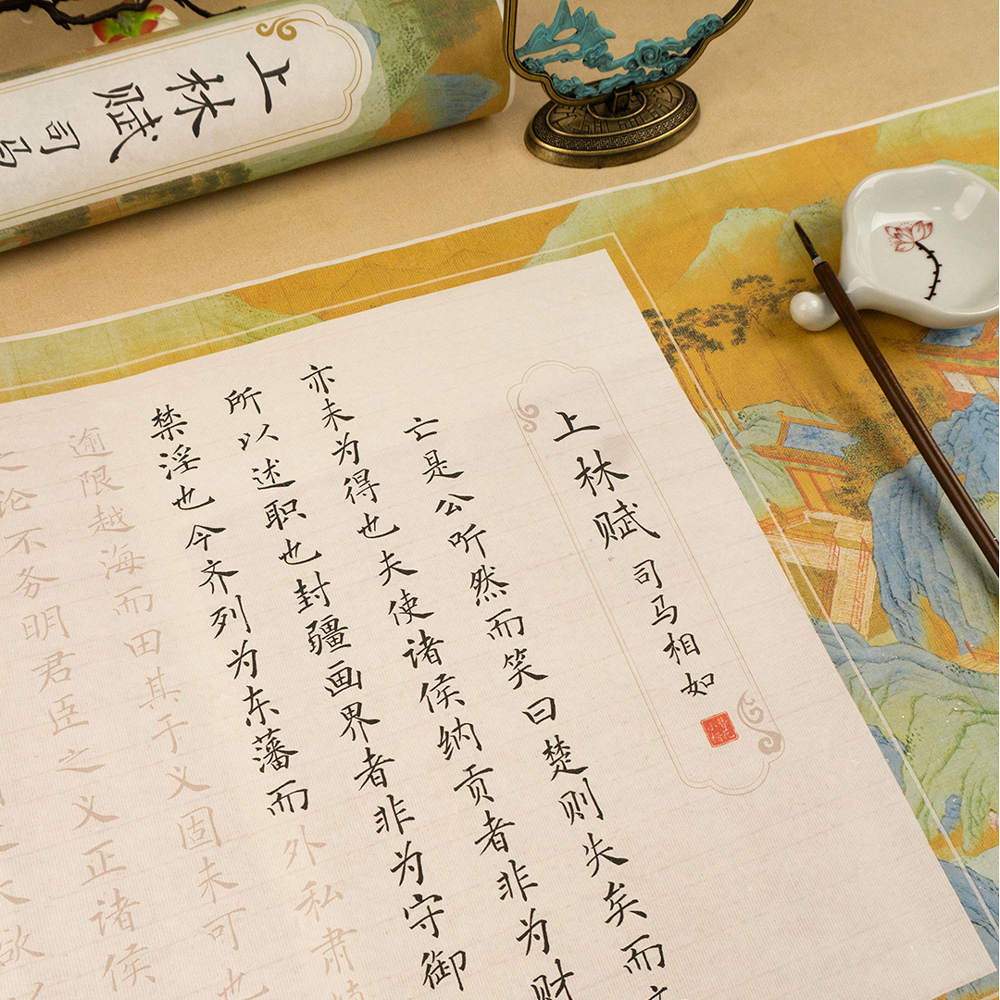 上林赋 司马
上林赋 司马相如
簪花小楷
亡是公听然而笑曰楚则失矣而
亦未为得也夫使诸侯纳贡者非为财
所以述职也封疆画界者非为守御
禁淫也今齐列为东藩而外私肃
逾限越海而田其于义固未可也
之论不务明君臣之义正诸侯